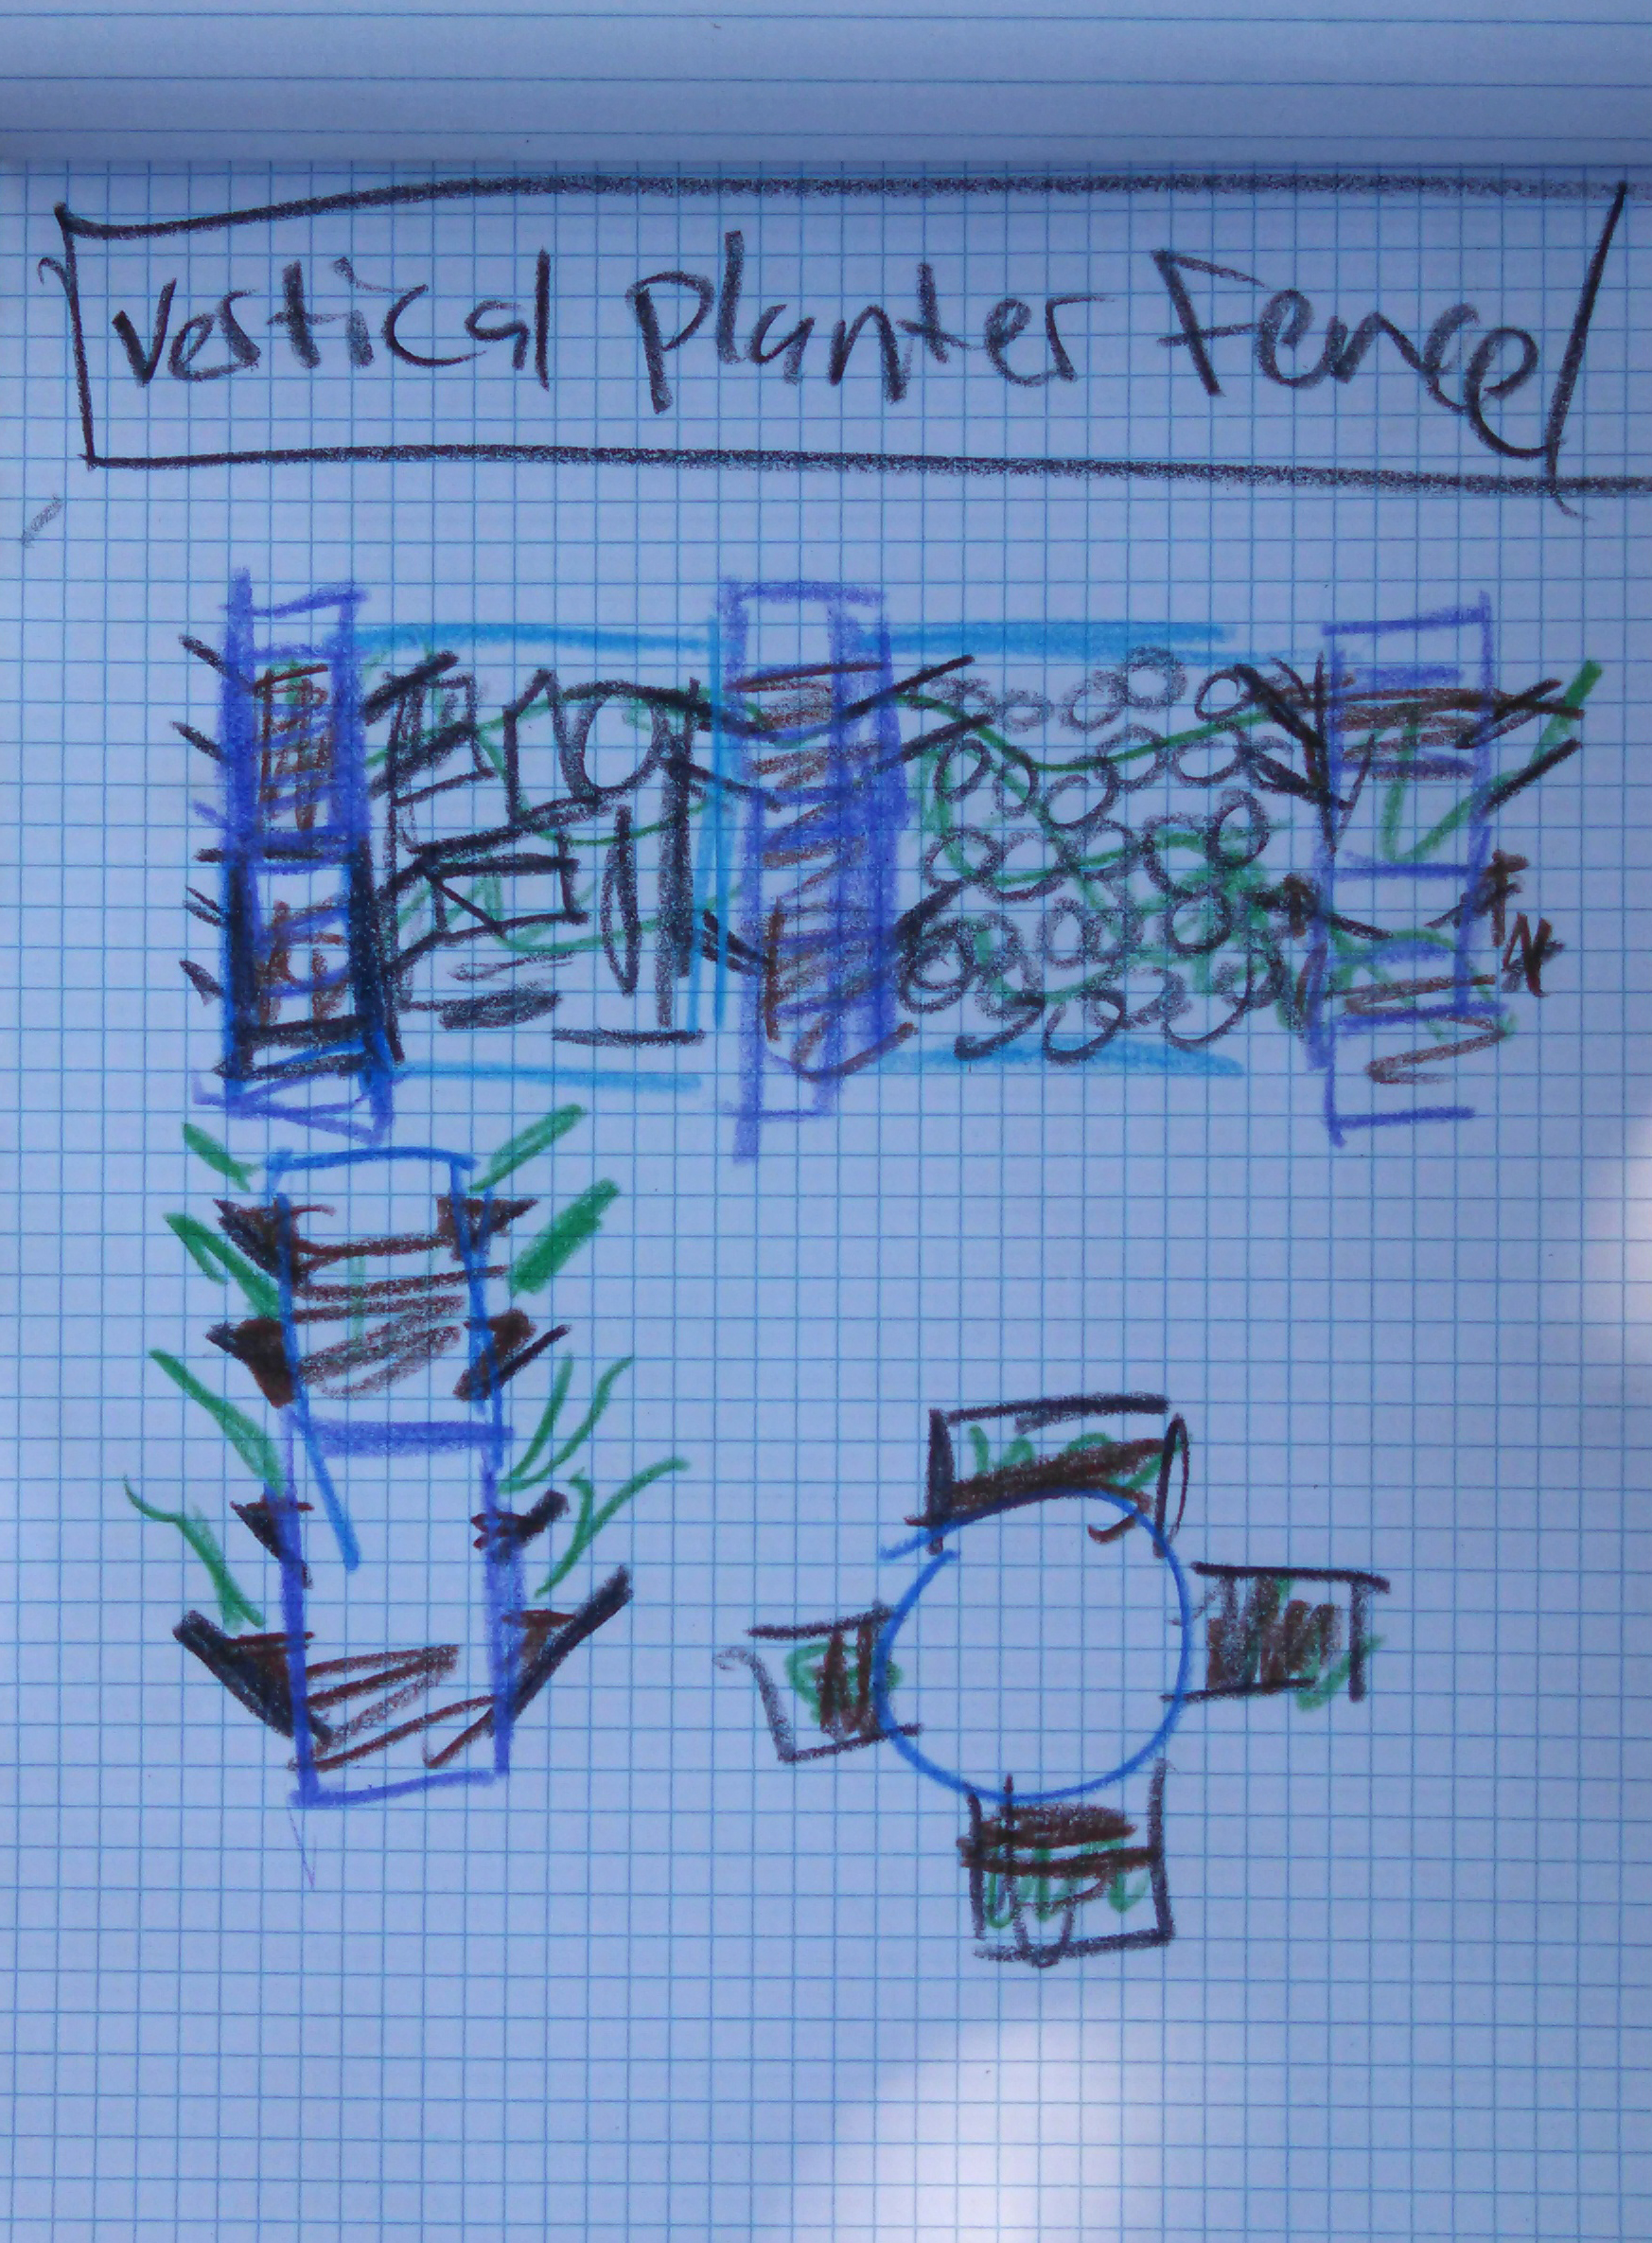 Vertical planter Fence